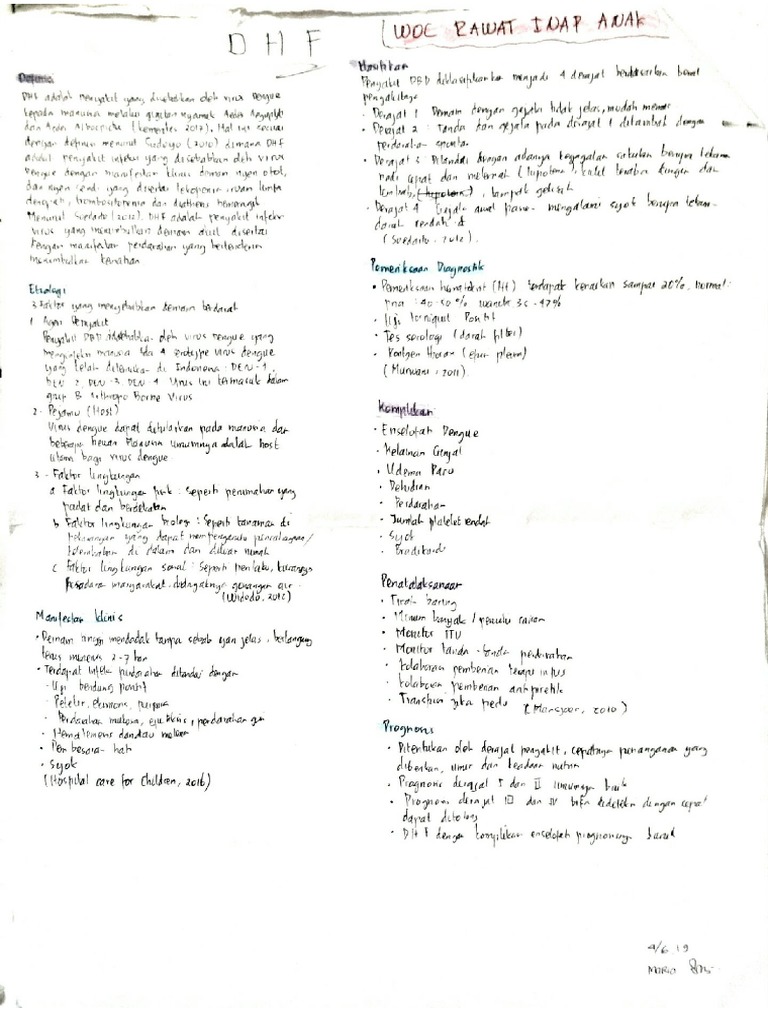 DHF
(WOC RAWAT INAP ANAK
Definisi
DHF adalah penyakit yang disebabkan oleh virus Dengue
kepada manusia melalui gigitan nyamuk Aedes Aegypti
dan Aedes Albopictus (Kemenkes 2017). Hal ini sesuai
dengan definisi menurut Sudoyo (2010) dimana DHF
adalah penyakit infeksi yang disebabkan oleh virus
Dengue dengan manifestasi klinis demam nyeri otot,
dan nyeri sendi yang disertai lekopenia ruam limfa
trombositopenia dan diathesis hemoragik
Menurut Soedarto (2012). DHF adalah penyakit infeksi
virus yang menimbulkan demam akut disertai
dengan manifestasi perdarahan yang
menimbulkan kematian
Etiologi
3 Faktor yang menyebabkan demam berdarah
1. Agen Penyakit
Penyakit DBD disebabkan oleh virus Dengue yang
menginfeksi manusia Ada 4 serotype virus dengue
yang telah ditemukan di Indonesia. DEN-1,
DEN 2, DEN 3, DEN-4 Virus ini termasuk dalam
grup B Arthropo Borne Virus
2. Pejamu (Host)
Virus dengue dapat ditularkan pada manusia dan
beberapa hewan Manusia umumnya adalah host
utama bagi virus dengue
3. Faktor lingkungan
a Faktor lingkungan fisik : Seperti perumahan yang
padat dan berdekatan
b Faktor lingkungan biologi : Seperti tanaman di
pekarangan yang dapat mempengaruhi pencahayaan/
kelembaban di dalam dan diluar rumah
c Faktor lingkungan sosial : Seperti perilaku, kurangnya
masyarakat, genangan air.
(Widodo, 2012)
Manifestasi klinis
• Demam tinggi mendadak tanpa sebab yang jelas, berlangsung
terus menerus 2-7 hari
• Terdapat perdarahan ditandai dengan
- Uji bendung positif
- Petekie, ekimosis, purpura
- Perdarahan mukosa, epistaksis, perdarahan gusi
• Hematemesis dan/atau melena
• Pembesaran hati
• Syok
(Hospital care for Children, 2016)
Klasifikasi
Penyakit DBD diklasifikasikan menjadi 4 derajat berdasarkan berat
penyakitnya
• Derajat 1 Demam dengan gejala tidak jelas, mudah memar
• Derajat 2 : Tanda dan gejala pada derajat 1 ditambah dengan
perdarahan spontan.
• Derajat 3 Ditandai dengan adanya kegagalan sirkulasi berupa tekanan
nadi cepat dan melemah (hipotensi), kulit teraba dingin dan
lembab, (hipotensi), tampak gelisah
• Derajat 4 mengalami syok berupa tekanan
darah rendah
(Soedarto, 2012).
Pemeriksaan Diagnostik
• Pemeriksaan hematokrit (Ht) terdapat kenaikan sampai 20%, normal:
pria : 40-50%, wanita 35-47%
• Uji Torniquet Positif
• Tes serologi (darah filter)
• Rontgen thorax (efusi pleura)
(Murwani, 2011).
Komplikasi
• Enselofati Dengue
• Kelainan Ginjal
• Udema Paru
• Dehidrasi
• Perdarahan
• Jumlah platelet rendah
• Syok
• Bradikardi
Penatalaksanaan
• Tirah baring
• Minum banyak / cairan
• Monitor TTV
• Monitor tanda-tanda perdarahan
• kolaborasi pemberian terapi infus
• kolaborasi pemberian antipiretik
• Transfusi jika perlu (Mansjoer, 2010)
Prognosis
• Ditentukan oleh derajat penyakit, cepatnya penanganan yang
diberikan, umur dan keadaan nutrisi
• Prognosis derajat I dan II umumnya baik
• Prognosis derajat III dan IV bila dideteksi dengan cepat
dapat ditolong
• DHF dengan komplikasi enselofati prognosisnya buruk
4/6 19
MARIO